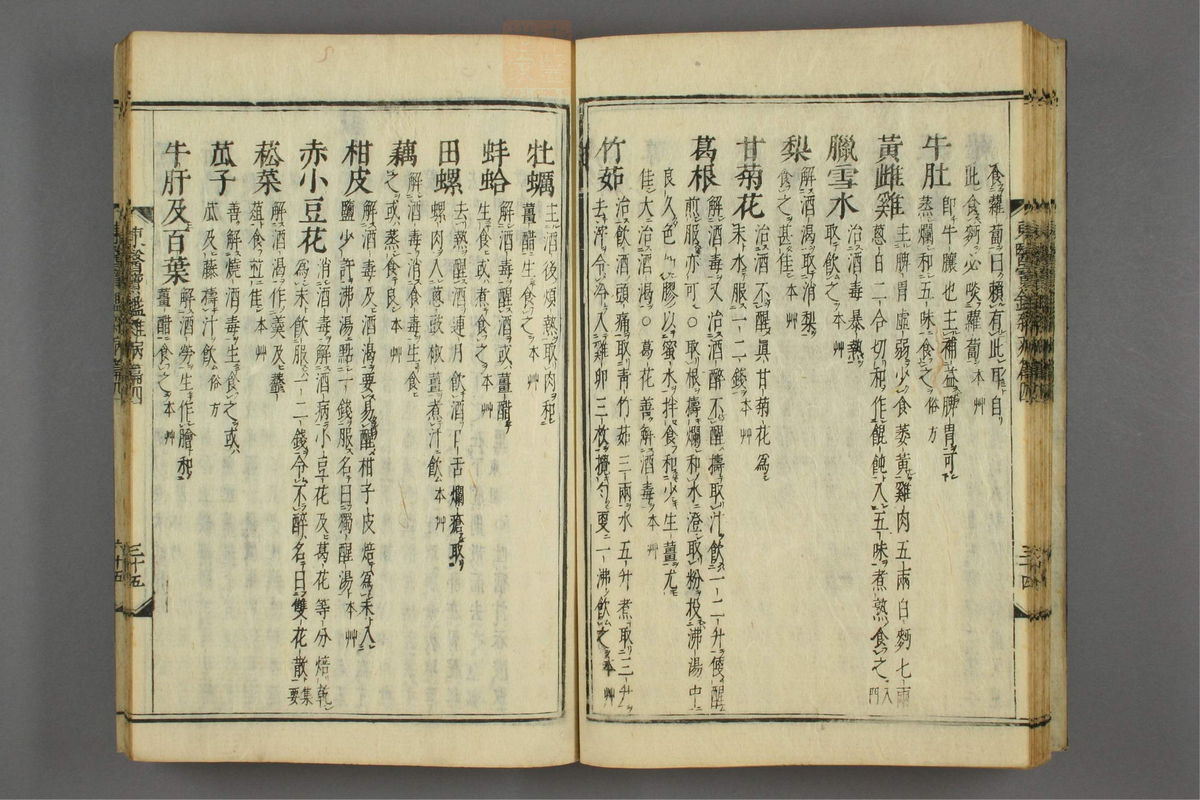 食蘿蔔曰賴有此耳自
此食麪必啖蘿蔔本艸
牛肚
即牛膍也主補益脾胃可
蒸爛和五味食之俗方
黃雌雞
主脾胃虛弱少食萎黃雞肉五兩白麪七兩
葱白二合切和作餛飩入五味煮熟食之入門
臘雪水
治酒毒暴熱
取飲之本艸
梨
解酒渴取消梨
食之甚佳本艸
甘菊花
治酒不醒眞甘菊花爲
末水服一二錢本艸
葛根
解酒毒又治酒醉不醒擣取汁飮一二升便醒
煎服亦可○取根擣爛和水澄取粉投沸湯中
良久色如膠以蜜水拌食和少生薑尤
佳大治酒渴○葛花善解酒毒本艸
竹茹
治飮酒頭痛取靑竹茹三兩水五升煮取三升
去滓令冷入雞卵三枚攪勻更一沸飮之本艸
牡蠣
主酒後煩熱取肉和
薑醋生食之本艸
蚌蛤
解酒毒醒酒或薑醋
生食或煮食之本艸
田螺
去熱醒酒連月飮酒口舌爛瘡取
螺肉入葱豉椒薑煮汁飮本艸
藕
解酒毒消食生食
之或蒸食良本艸
柑皮
解酒毒及酒渴要易醒柑子皮焙爲末入
鹽少許沸湯點一錢服名曰獨醒湯本艸
赤小豆花
消酒毒解酒病小豆花及葛花等分焙乾
爲末飮服一二錢令不醉名曰雙花散集要
菘菜
解酒渴作羹及虀
菹食竝佳本艸
苽子
善解燒酒毒生食之或
苽及藤擣汁飮俗方
牛肝及百葉
解酒勞生作膾和
薑醋食之本艸
三十四
三十五